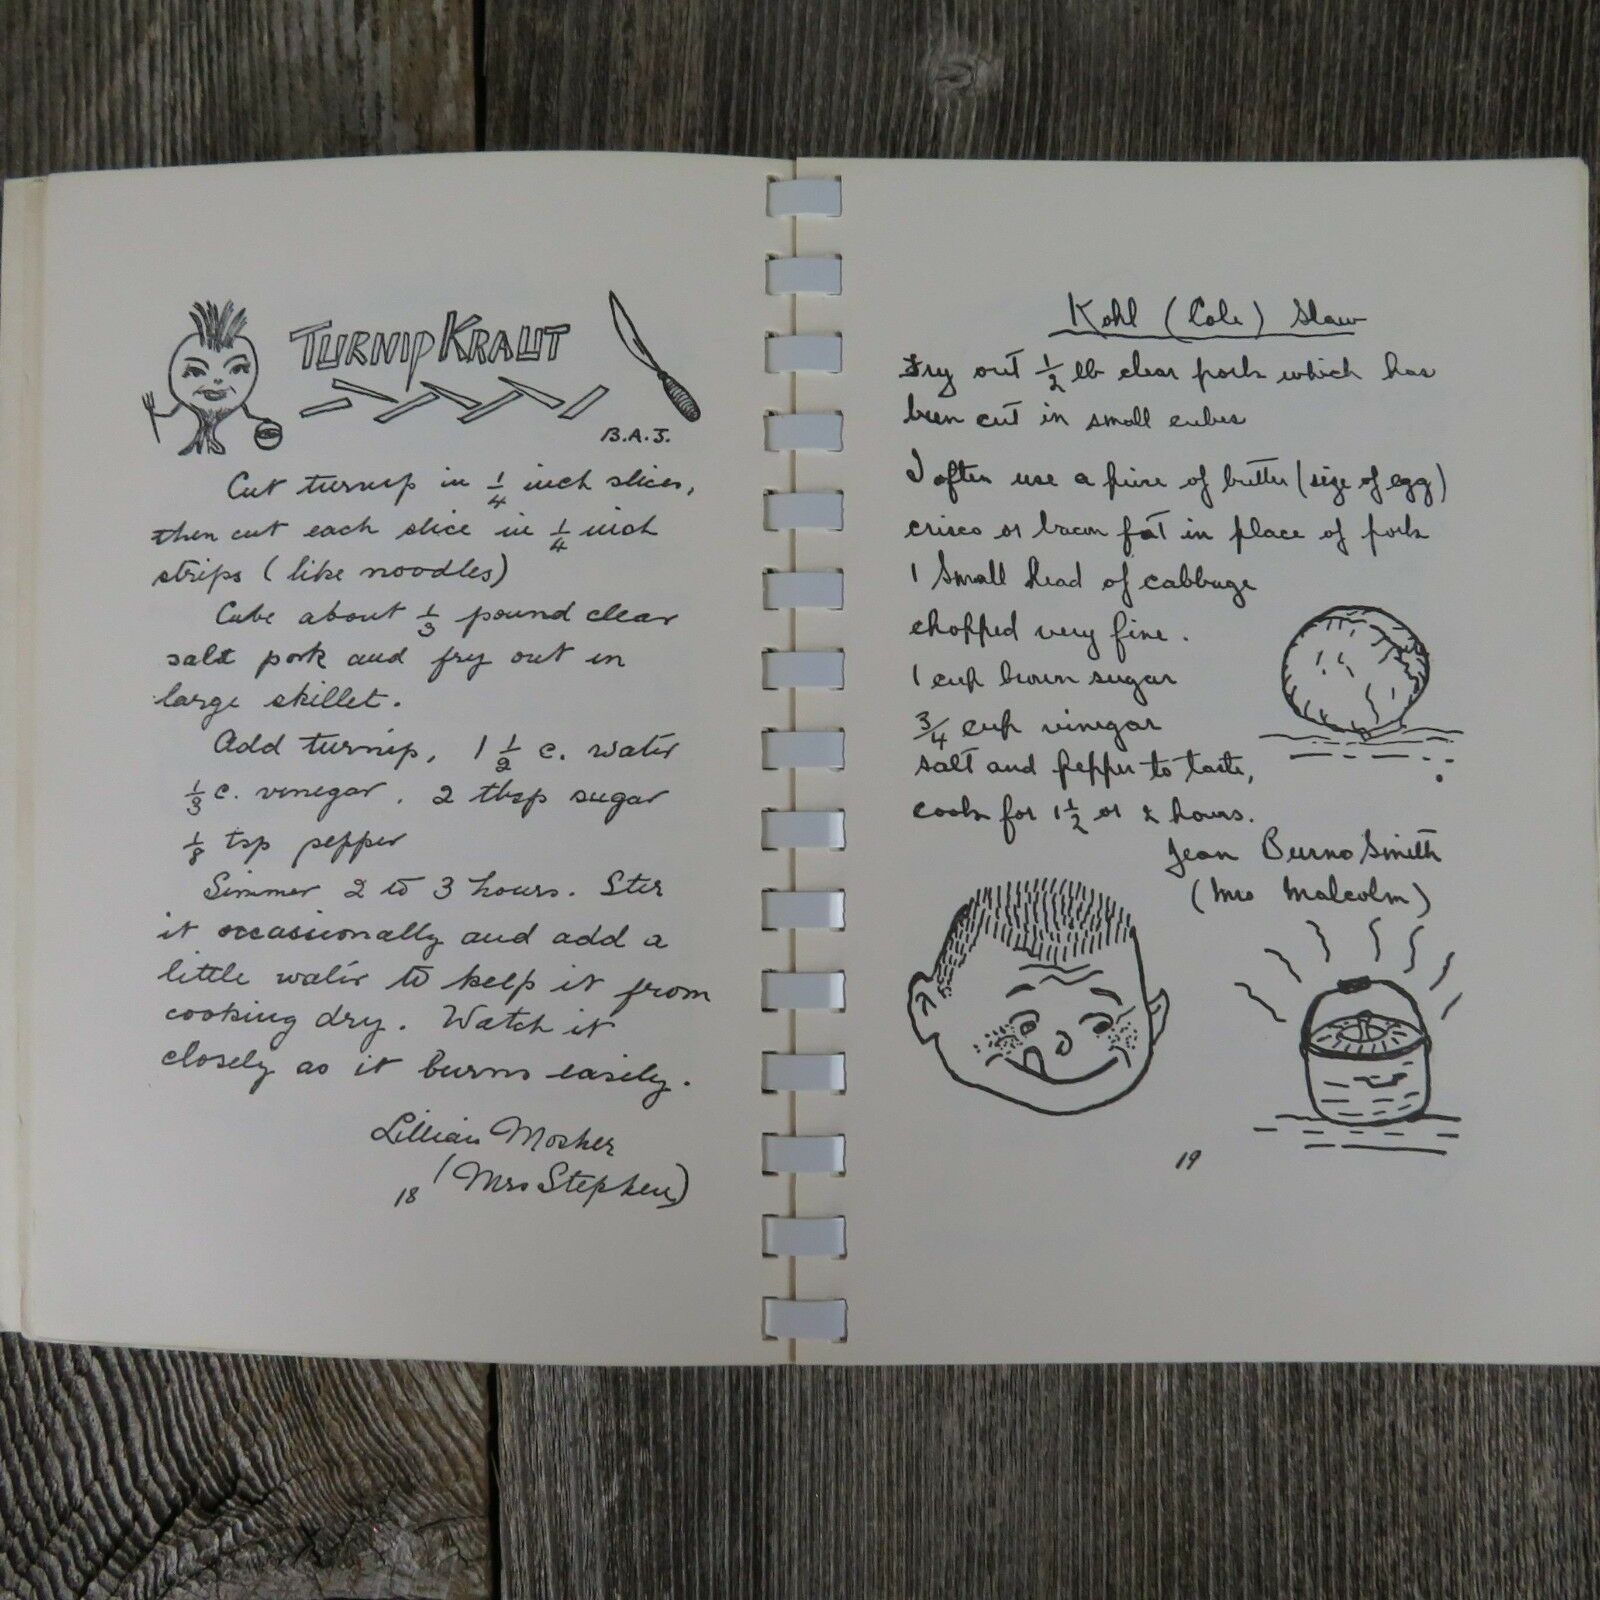 TURNIP KRAUT
B.A.J.
Cut turnip in 1/4 inch slices,
then cut each slice in 1/4 inch
strips (like noodles)
Cube about 1/3 pound clear
salt pork and fry out in
large skillet.
Add turnip, 1 1/2 c. water
1/3 c. vinegar, 2 tbsp sugar
1/8 tsp pepper
Simmer 2 to 3 hours. Stir
it occassionally and add a
little water to keep it from
cooking dry. Watch it
closely as it burns easily.
Lillian Mosher
(Mrs Stephen)
18
Kohl (Cole) Slaw
Fry out 1/2 lb clear pork which has
been cut in small cubes
I often use a piece of butter (size of egg)
crisco or bacon fat in place of pork
1 Small head of cabbage
chopped very fine.
1 cup brown sugar
3/4 cup vinegar
salt and pepper to taste,
cook for 1 1/2 or 2 hours.
Jean Burno Smith
(Mrs Malcolm)
19